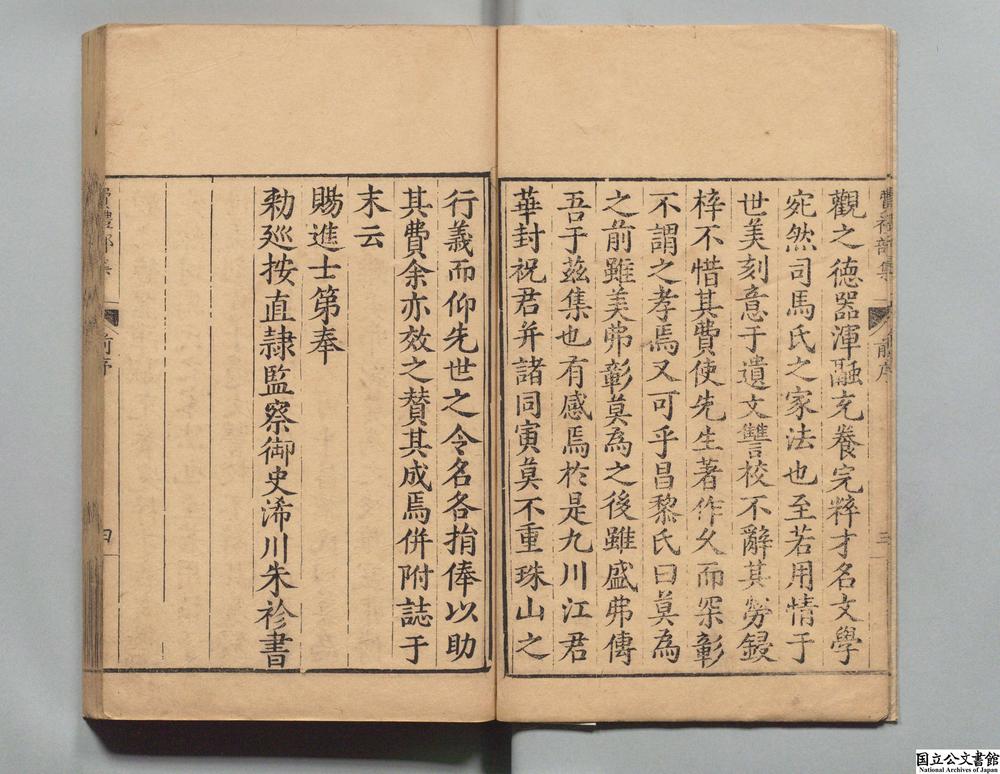 觀之德器渾融充養完粹才名文學
宛然司馬氏之家法也至若用情于
世美刻意于遺文讐校不辭其勞鋟
梓不惜其費使先生著作久而罙彰
不謂之孝焉又可乎昌黎氏曰莫為
之前雖美弗彰莫為之後雖盛弗傳
吾于茲集也有感焉於是九川江君
華封祝君并諸同寅莫不重珠山之
三
行義而仰先世之令名各捐俸以助
其費余亦效之賛其成焉併附誌于
末云
賜進士第奉
勑廵按直隷監察御史浠川朱袗書
前序
四
国立公文書館
National Archives of Japan